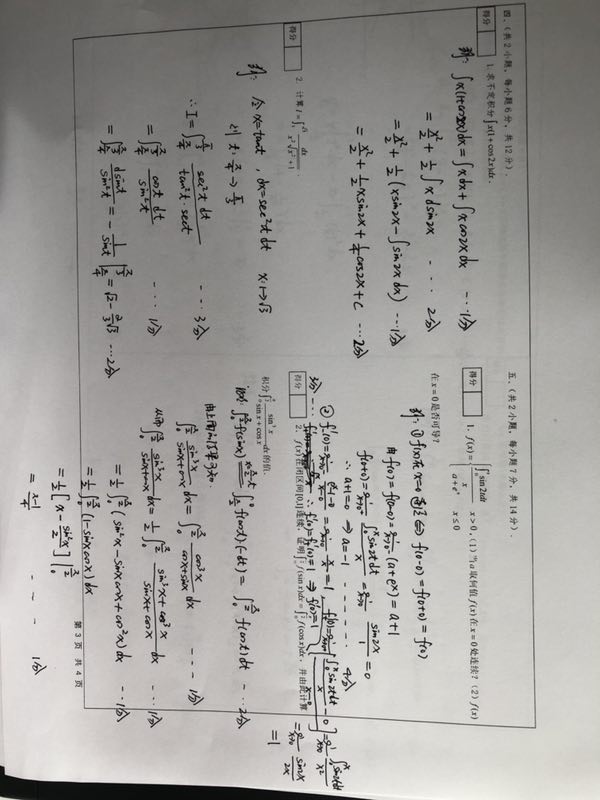 四、(共2小题,每小题6分,共12分).
得分
1. 求不定积分∫x(1+cos2x)dx.
解: ∫x(1+cos2x)dx = ∫x dx + ∫x cos2x dx ---1分
= x²/2 + 1/2 ∫x dsin2x ---- 2分
= x²/2 + 1/2 (xsin2x - ∫sin2x dx) ---1分
= x²/2 + 1/2 xsin2x + 1/4 cos2x + C --- 2分
得分
2. 计算 I = ∫₁^√3 dx/(x²√(x²+1)).
解: 令 x=tant, dx=sec²t dt x:1→√3
则 t: π/4 → π/3
∴ I = ∫_{π/4}^{π/3} sec²t dt/(tan²t·sect) ---3分
= ∫_{π/4}^{π/3} cost dt/sin²t ---1分
= ∫_{π/4}^{π/3} dsint/sin²t = -1/sint |_{π/4}^{π/3} = √2 - 2/3 √3 ---2分
五、(共2小题,每小题7分,共14分).
得分
1. f(x) = { ∫₀ˣ sin2tdt / x x>0, a+eˣ x≤0 ,(1)当a取何值f(x)在x=0处连续?(2)f(x)
在x=0是否可导?
解: ① f(x)在x=0连续 ⇔ f(0-0)=f(0+0)=f(0)
由 f(0)=f(0-0)=lim_{x→0⁻}(a+eˣ)=a+1
f(0+0)=lim_{x→0⁺} ∫₀ˣ sin2t dt / x = lim_{x→0} sin2x/1 = 0
∴ a+1=0 ⇒ a=-1 ------ 4分
② f'₋(0)=lim_{x→0⁻} (eˣ-1-0)/(x-0) = lim_{x→0⁻} x/x = 1, f'₊(0)=lim_{x→0⁺} [∫₀ˣ sin2tdt / x - 0]/(x-0) = lim_{x→0} ∫₀ˣ sin2tdt / x²
= lim_{x→0} sin2x/2x
= 1
3分 --- ∴ f'₋(0)=f'₊(0)=1 ⇒ f'(0)=1
得分
2. f(x)在闭区间[0,1]连续,证明∫₀^{π/2} f(sinx)dx = ∫₀^{π/2} f(cosx)dx,并由此计算
积分∫₀^{π/2} sin³x/(sinx+cosx) dx的值.
证: ∫₀^{π/2} f(sinx)dx =(x=π/2-t)= ∫_{π/2}^0 f(cost)·(-dt) = ∫₀^{π/2} f(cost)dt ---2分
由上面的结果可知.
∫₀^{π/2} sin³x/(sinx+cosx) dx = ∫₀^{π/2} cos³x/(cosx+sinx) dx ---- 1分
从而 ∫₀^{π/2} sin³x/(sinx+cosx) dx = 1/2 ∫₀^{π/2} (sin³x+cos³x)/(sinx+cosx) dx ---1分
= 1/2 ∫₀^{π/2} (sin²x - sinxcosx + cos²x)dx ---1分
= 1/2 ∫₀^{π/2} (1-sinxcosx)dx
= 1/2 [x - sin²x/2] |₀^{π/2}
= (π-1)/4 --- 1分
第 3 页 共 4 页